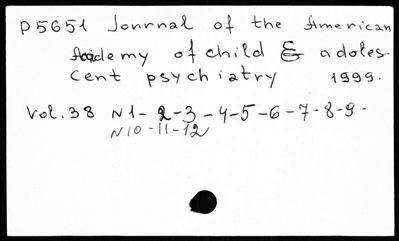 P5651 Jonrnal of the American
Acidemy of child & adoles-
cent psychiatry 1999.
Vol. 38 N1-2-3-4-5-6-7-8-9-
N10-11-12